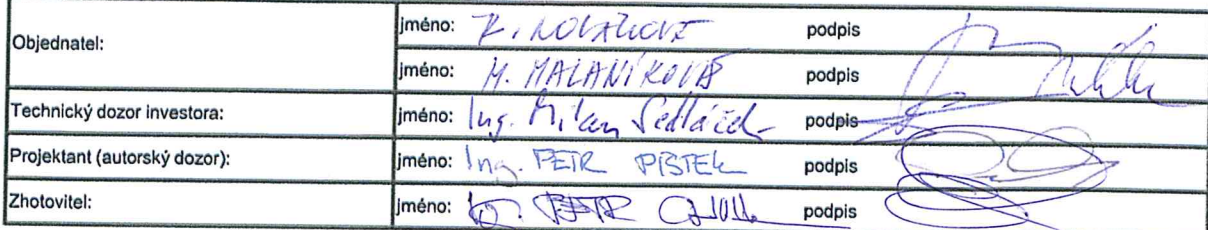 Objednatel: jméno: K. NOVÁKOVÁ podpis
jméno: M. MALANÍKOVÁ podpis
Technický dozor investora: jméno: Ing. Milan Sedláček podpis
Projektant (autorský dozor): jméno: Ing. PETR PIŠTĚK podpis
Zhotovitel: jméno: Ing. PETR podpis